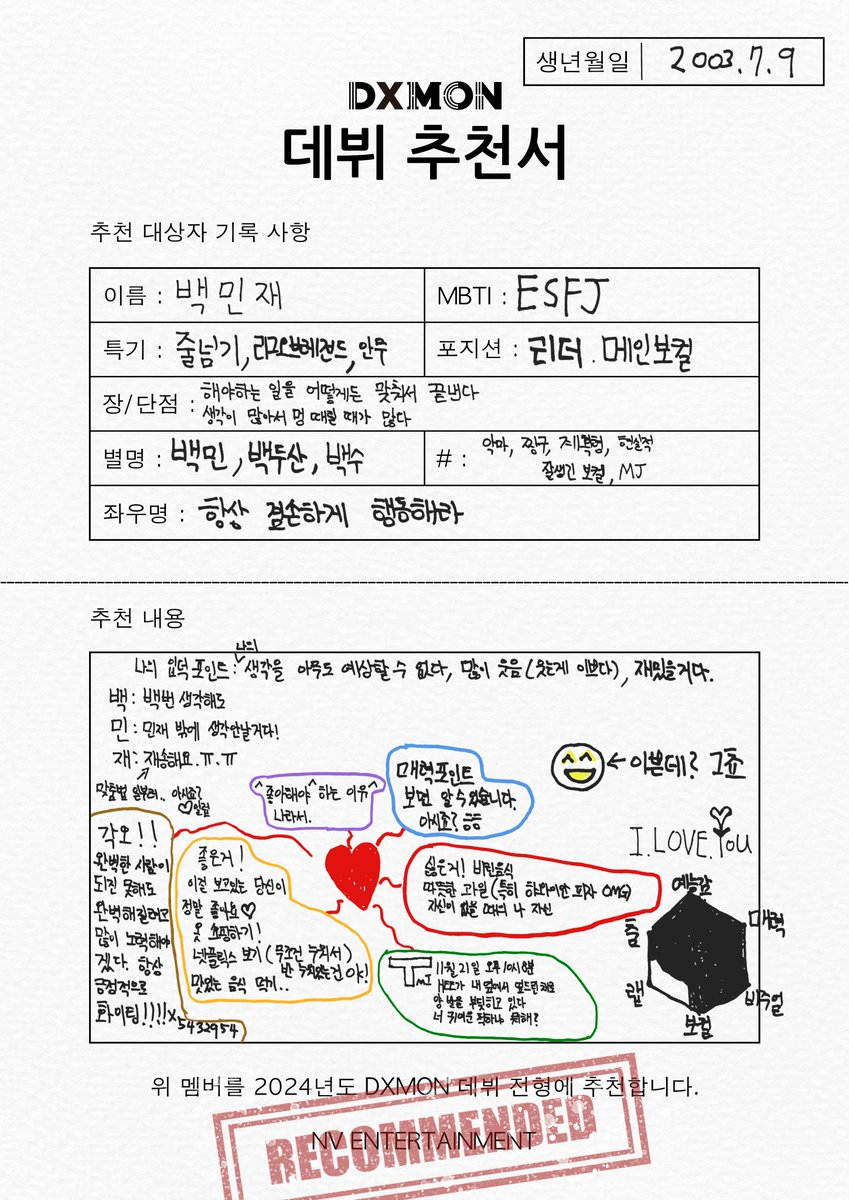 생년월일 2003.7.9
DXMON
데뷔 추천서
추천 대상자 기록 사항
이름 : 백민재
MBTI : ESFJ
특기 : 줄넘기, 리그오브레전드, 안무
포지션 : 리더. 메인보컬
장/단점 : 해야하는 일을 어떻게든 맞춰서 끝낸다
생각이 많아서 멍 때릴 때가 많다
별명 : 백민, 백두산, 백수
# : 악마, 짱구, 제육쌈, 현실적
잘생긴 보컬, MJ
좌우명 : 항상 겸손하게 행동해라
추천 내용
나의 입덕 포인트 : 나의 생각을 아무도 예상할 수 없다, 많이 웃음 (웃는게 이쁘다), 재밌을거다.
백 : 백번 생각해도
민 : 민재 밖에 생각안날거다!
재 : 재송해요.ㅠ.ㅠ
맞춤법 일부러.. 아시죠?
♡알럽
^좋아해야^하는 이유^
나라서.
매력포인트
보면 알 수 있습니다.
아시죠? ㅎㅎ
←이쁜데? 그쵸
I.LOVE.YOU
각오!!
완벽한 사람이
되진 못해도
완벽해질려고
많이 노력해야
겠다. 항상
긍정적으로
화이팅!!!!x5432954
좋은거!
이걸 보고있는 당신이
정말 좋아요♡
옷 쇼핑하기!
넷플릭스 보기 (무조건 누워서)
반 누워있는건 야!
맛있는 음식 먹기..
싫은거! 비린음식
따뜻한 과일 (특히 하와이안 피자 OMG)
자신이 없을 때의 나 자신
TMI
11월 21일 오후 10시 6분
HEE가 내 앞에서 엎드린채로
양 발을 부딪히고 있다
너 귀여운 척하냐 뭐해?
예능감
매력
비주얼
보컬
랩
춤
위 멤버를 2024년도 DXMON 데뷔 전형에 추천합니다.
NV ENTERTAINMENT
RECOMMENDED